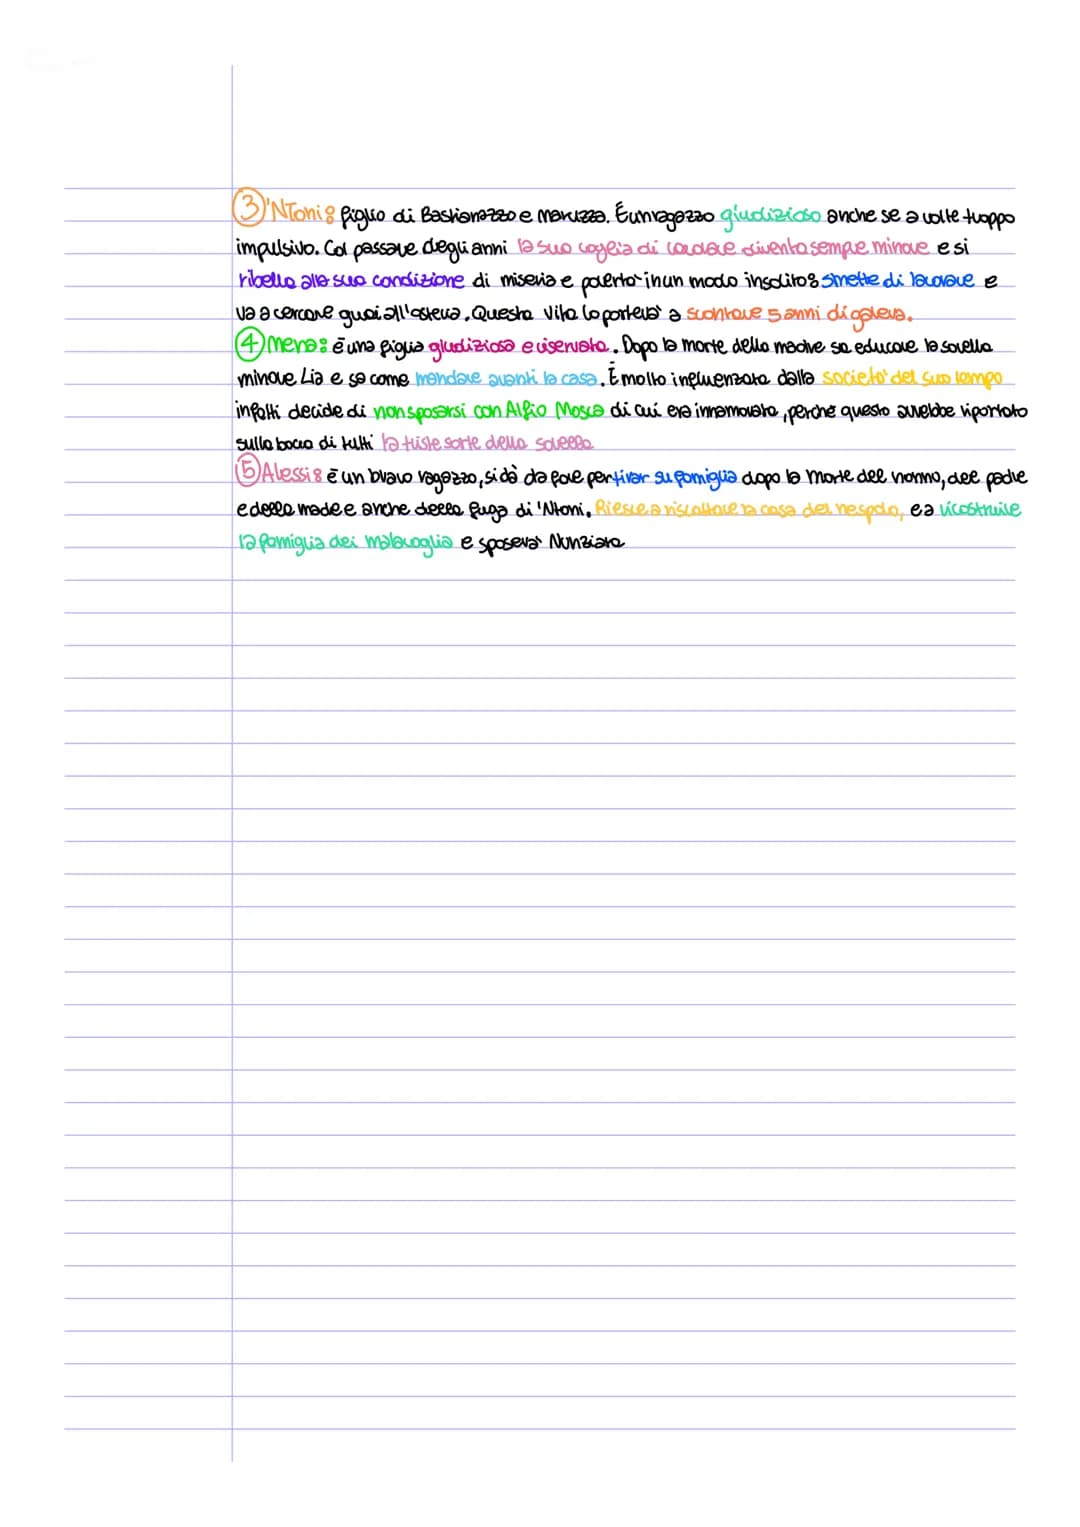 3 'NToni: figlio di Bastianazzo e Maruzza. È un ragazzo giudizioso anche se a volte troppo
impulsivo. Col passare degli anni la sua voglia di lavorare diventa sempre minore e si
ribella alla sua condizione di miseria e povertà in un modo insolito: smette di lavorare e
va a cercare guai all'osteria. Questa vita lo porterà a scontare 5 anni di galera.
4 Mena: è una figlia giudiziosa e riservata. Dopo la morte della madre sa educare la sorella
minore Lia e sa come mandare avanti la casa. È molto influenzata dalla società del suo tempo
infatti decide di non sposarsi con Alfio Mosca di cui era innamorata, perché questo avrebbe riportato
sulla bocca di tutti la triste sorte della sorella
5 Alessi: è un bravo ragazzo, si dà da fare per tirar su famiglia dopo la morte del nonno, del padre
e della madre e anche della fuga di 'Ntoni. Riesce a riscattare la casa del nespolo, e a ricostruire
la famiglia dei malavoglia e sposerà Nunziata